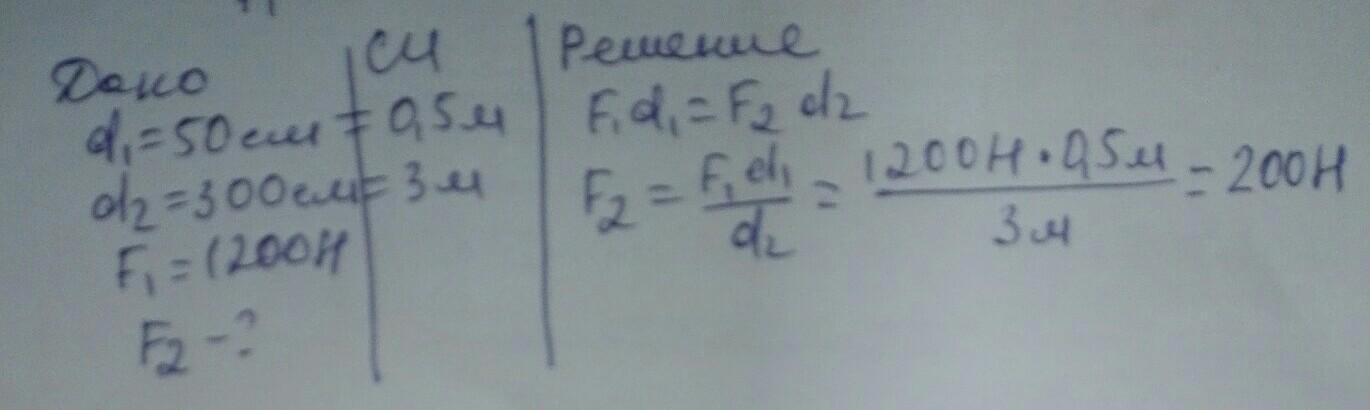 Дано
d₁=50см
d₂=300см
F₁=1200Н
F₂-?
СИ
=0,5м
=3м
Решение
F₁d₁=F₂ d₂
F₂ = F₁d₁/d₂ = 1200Н·0,5м/3м = 200Н